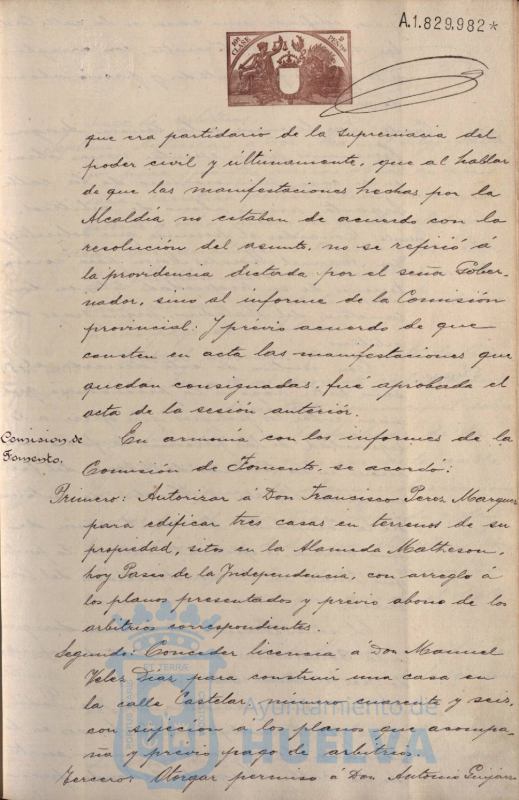 A.1.829.982*
10ª CLASE
2 PESETAS
que era partidario de la supremacia del
poder civil y últimamente, que al hablar
de que las manifestaciones hechas por la
Alcaldía no estaban de acuerdo con la
resolución del asunto, no se refirió á
la providencia dictada por el señor Gober-
nador, sino al informe de la Comisión
provincial. Y previo acuerdo de que
consten en acta las manifestaciones que
quedan consignadas, fué aprobada el
acta de la sesión anteriór.
Comision de
Fomento.
En armonía con los informes de la
Comisión de Fomento, se acordó:
Primero: Autorizar á Don Francisco Perez Marquez
para edificar tres casas en terrenos de su
propiedad, sitos en la Alameda Matheson,
hoy Paseo de la Independencia, con arreglo á
los planos presentados y previo abono de los
arbitrios correspondientes.
Segundo: Conceder licencia á Don Manuel
Velez Diaz para construir una casa en
la calle Castelar, número cuarenta y seis,
con sujeción á los planos que acompa-
ña y previo pago de arbitrios.
Tercero: Otorgar permiso á Don Antonio
Ayuntamiento de
HUELVA